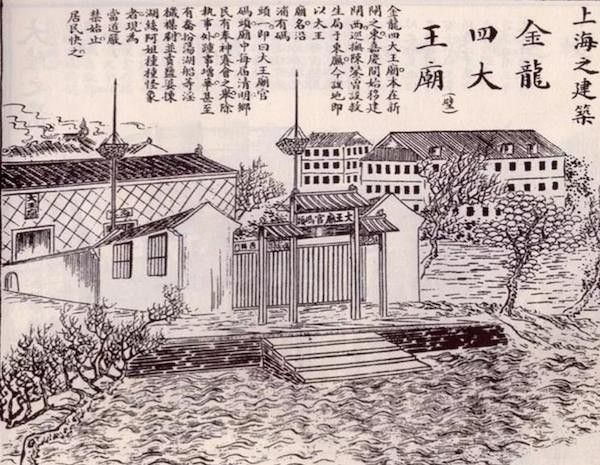 上海之建築
金龍
四大
王廟
(璧)
金龍四大王廟本在新
閘之東嘉慶間始移建
閘西巡撫陳鑾曾設救
生局于東廡今該地即
以大王
廟名沿
浦有碼
頭一即曰大王廟官
碼頭廟中每屆清明鄉
民有奉神賽會之舉除
執事外踵事增華甚至
有喬扮蕩湖船等淫
穢模樣並賣鹽婆揀
湖絲阿姐種種怪象
者現為
當道嚴
禁始止
居民快之
大王廟官碼頭